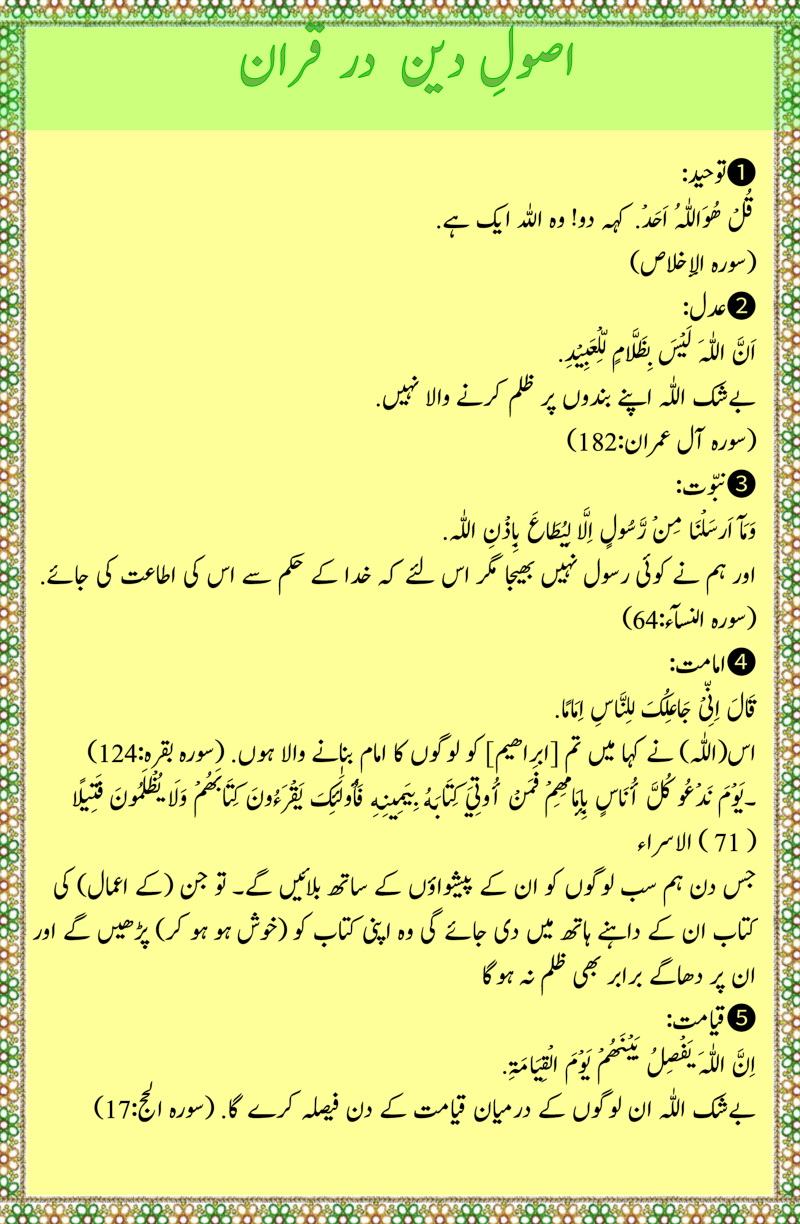 اصولِ دین در قرآن
❶توحید:
قُلْ هُوَاللّٰہُ اَحَدْ. کہہ دو! وہ اللہ ایک ہے.
(سورہ الإخلاص)
❷عدل:
اَنَّ اللّٰہَ لَیْسَ بِظَلَّامٍ لِّلْعَبِیْدِ.
بےشک اللّٰہ اپنے بندوں پر ظلم کرنے والا نہیں.
(سورہ آل عمران:182)
❸نبّوت:
وَمَآ اَرسَلْنَا مِنْ رَّسُولٍ اِلَّا لِیُطَاعَ بِاِذْنِ اللّٰہ.
اور ہم نے کوئی رسول نہیں بھیجا مگر اس لئے کہ خدا کے حکم سے اس کی اطاعت کی جائے.
(سورہ النسآء:64)
❹امامت:
قَالَ اِنِّیْ جَاعِلُکَ لِلنَّاسِ اِمَامًا.
اس(اللّٰہ) نے کہا میں تم [ابراھیم] کو لوگوں کا امام بنانے والا ہوں. (سورہ بقرہ:124)
۔یَوْمَ نَدْعُو کُلَّ أُنَاسٍ بِإِمَامِهِمْ فَمَنْ أُوتِيَ كِتَابَهُ بِيَمِينِهِ فَأُولَٰئِكَ يَقْرَءُونَ كِتَابَهُمْ وَلَا يُظْلَمُونَ فَتِيلًا
( 71 ) الاسراء
جس دن ہم سب لوگوں کو ان کے پیشواؤں کے ساتھ بلائیں گے۔ تو جن (کے اعمال) کی
کتاب ان کے داہنے ہاتھ میں دی جائے گی وہ اپنی کتاب کو (خوش ہو ہو کر) پڑھیں گے اور
ان پر دھاگے برابر بھی ظلم نہ ہوگا
❺قیامت:
اِنَّ اللّٰہَ یَفْصِلُ بَیْنَھُمْ یَوْمَ الْقِیَامَۃِ.
بےشک اللّٰہ ان لوگوں کے درمیان قیامت کے دن فیصلہ کرے گا. (سورہ الحج:17)